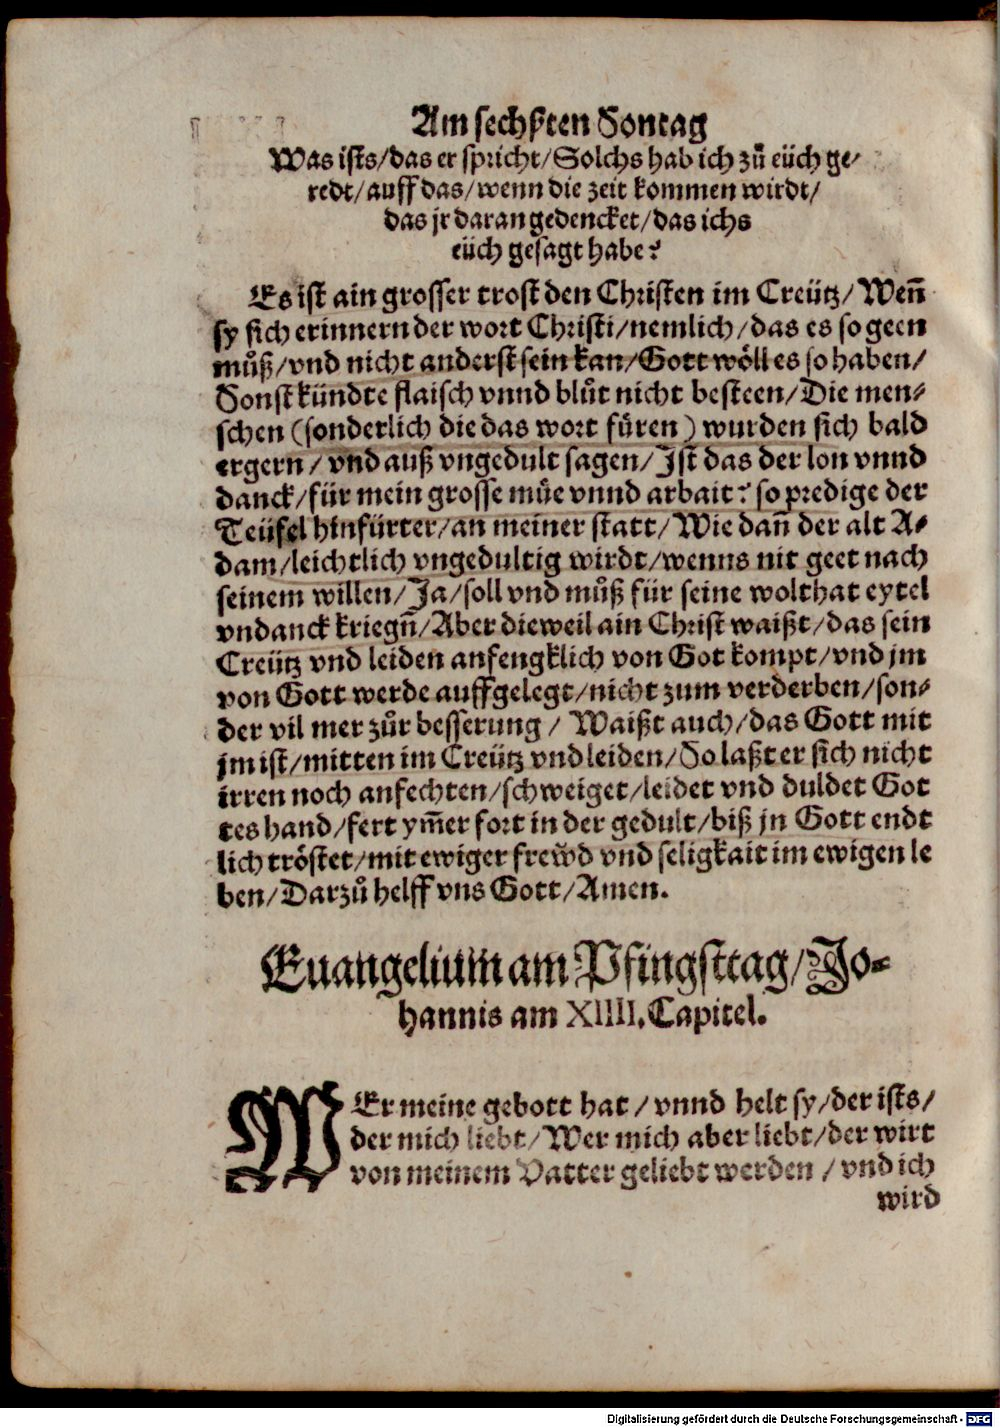 Am sechßten Sontag
Was ists/das er spricht/Solchs hab ich zů eüch ge/
redt/auff das/wenn die zeit kommen wirdt/
das jr daran gedencket/das ichs
eüch gesagt habe?
Es ist ain grosser trost den Christen im Creütz/Weñ
sy sich erinnern der wort Christi/nemlich/das es so geen
můß/vnd nicht anderst sein kan/Gott wöll es so haben/
Sonst kündte flaisch vnnd blůt nicht besteen/Die men-
schen (sonderlich die das wort füren) wurden sich bald
ergern/vnd auß vngedult sagen/Jst das der lon vnnd
danck/für mein grosse müe vnnd arbait? so predige der
Teüfel hinfürter/an meiner statt/Wie dañ der alt A-
dam/leichtlich vngedultig wirdt/wenns nit geet nach
seinem willen/Ja/soll vnd můß für seine wolthat eytel
vndanck kriegñ/Aber dieweil ain Christ waißt/das sein
Creütz vnd leiden anfengklich von Got kompt/vnd jm
von Gott werde auffgelegt/nicht zum verderben/son-
der vil mer zůr besserung/Waißt auch/das Gott mit
jm ist/mitten im Creütz vnd leiden/So laßt er sich nicht
irren noch anfechten/schweiget/leidet vnd duldet Got
tes hand/fert ym̃er fort in der gedult/biß jn Gott endt
lich tröstet/mit ewiger frewd vnd seligkait im ewigen le
ben/Darzů helff vns Gott/Amen.
Euangelium am Pfingsttag/Jo-
hannis am XIIII. Capitel.
WEr meine gebott hat/vnnd helt sy/der ists/
der mich liebt/Wer mich aber liebt/der wirt
von meinem Vatter geliebt werden/vnd ich
wird
Digitalisierung gefördert durch die Deutsche Forschungsgemeinschaft - DFG